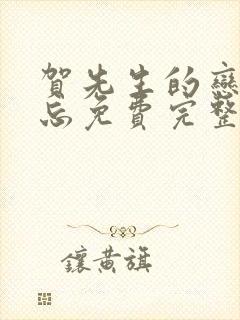 賀先生的戀
忘免費完整
鑲黃旗